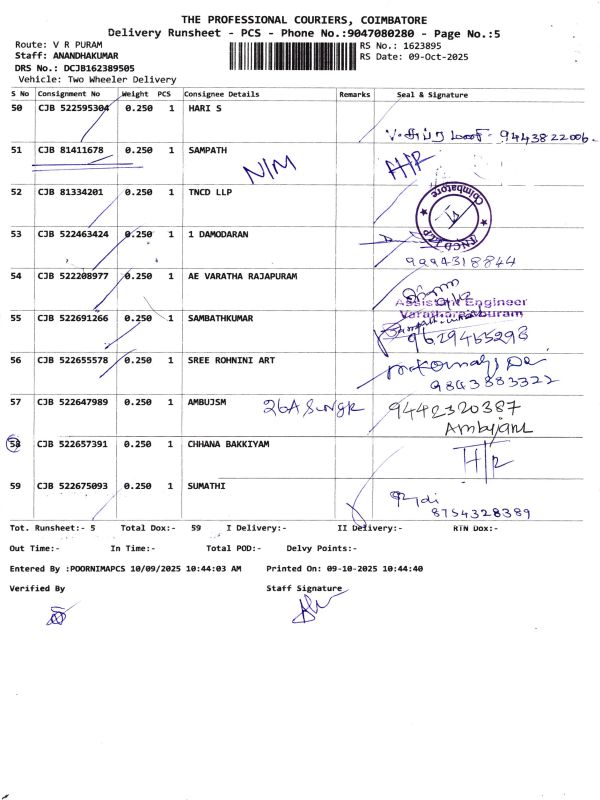 THE PROFESSIONAL COURIERS, COIMBATORE
Delivery Runsheet - PCS - Phone No.:9047080280 - Page No.:5
Route: V R PURAM
RS No.: 1623895
Staff: ANANDHAKUMAR
RS Date: 09-Oct-2025
DRS No.: DCJB162389505
Vehicle: Two Wheeler Delivery
S No Consignment No Weight PCS Consignee Details Remarks Seal & Signature
50 CJB 522595304 0.250 1 HARI S
9443822006.
51 CJB 81411678 0.250 1 SAMPATH N/M
52 CJB 81334201 0.250 1 TNCD LLP
Coimbatore
TNCD LLP
53 CJB 522463424 0.250 1 1 DAMODARAN
9994318844
54 CJB 522208977 0.250 1 AE VARATHA RAJAPURAM
Assistant Engineer
Varatharajapuram
55 CJB 522691266 0.250 1 SAMBATHKUMAR
9629465298
56 CJB 522655578 0.250 1 SREE ROHNINI ART
9843883322
57 CJB 522647989 0.250 1 AMBUJSM 9442320387
58 CJB 522657391 0.250 1 CHHANA BAKKIYAM H/R
59 CJB 522675093 0.250 1 SUMATHI
8754328389
Tot. Runsheet:- 5 Total Dox:- 59 I Delivery:- II Delivery:- RTN Dox:-
Out Time:- In Time:- Total POD:- Delvy Points:-
Entered By :POORNIMAPCS 10/09/2025 10:44:03 AM Printed On: 09-10-2025 10:44:40
Verified By Staff Signature